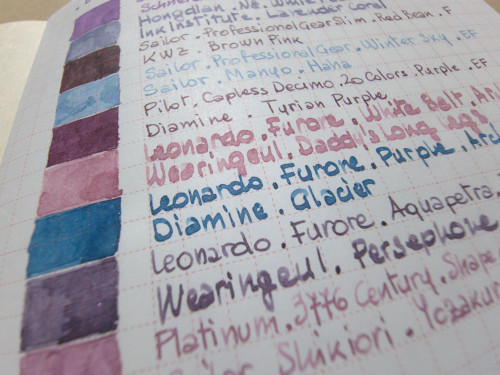 Hongdian. N2. White
Ink Institute. Lavender Coral
Sailor. Professional Gear Slim. Red Bean. F
KWZ. Brown Pink
Sailor. Professional Gear. Winter Sky. EF
Sailor. Manyo. Hana
Pilot. Capless Decimo. 20 Colors. Purple. EF
Diamine. Tyrian Purple
Leonardo. Furore. White Salt.
Wearingeul. Daddy's Long Legs
Leonardo. Furore. Purple. Arc
Diamine. Glacier
Leonardo. Furore. Aquapetra.
Wearingeul. Persephone
Platinum. 3776 Century. Shape
Sailor Shikiori. Yozakura